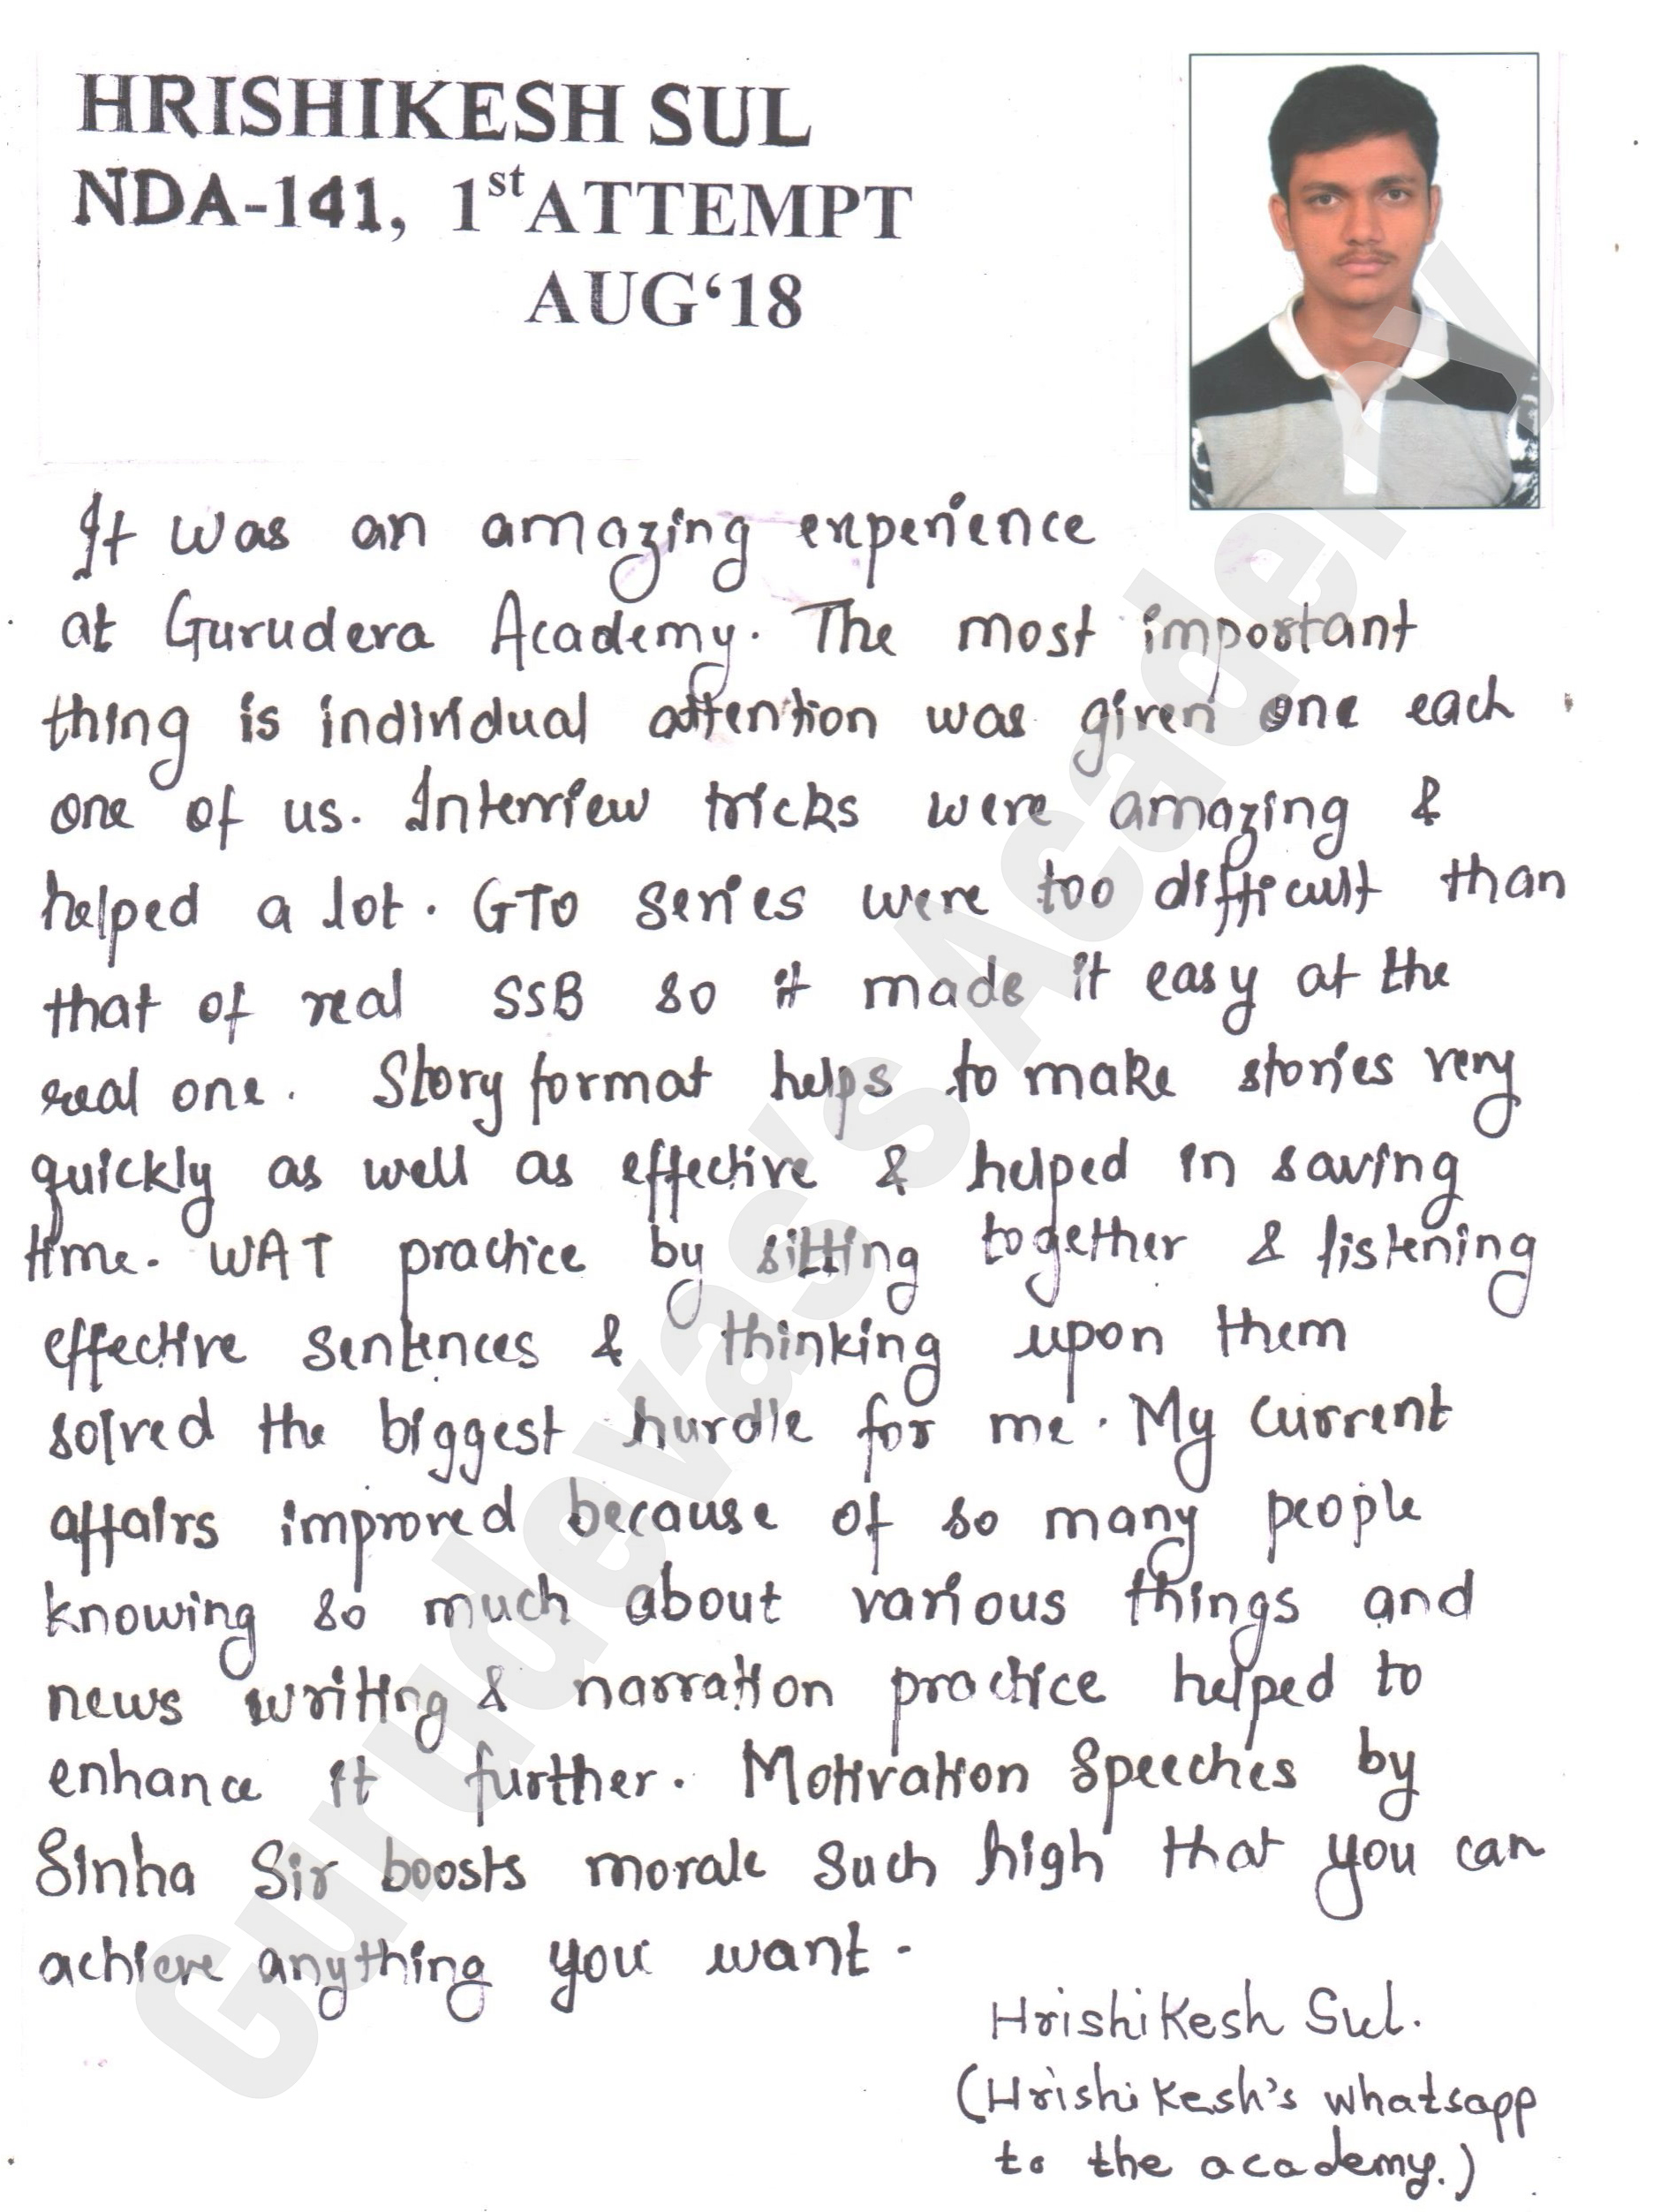 HRISHIKESH SUL
NDA-141, 1st ATTEMPT
AUG‘18
It was an amazing experience
at Gurudeva Academy. The most important
thing is individual attention was given one each
one of us. Interview tricks were amazing &
helped a lot. GTO series were too difficult than
that of real SSB so it made it easy at the
real one. Story format helps to make stories very
quickly as well as effective & helped in saving
time. WAT practice by sitting together & listening
effective sentences & thinking upon them
solved the biggest hurdle for me. My current
affairs improved because of so many people
knowing so much about various things and
news writing & narration practice helped to
enhance it further. Motivation Speeches by
Sinha Sir boosts morale such high that you can
achieve anything you want.
Hrishikesh Sul.
(Hrishikesh's whatsapp
to the academy.)
Gurudevas's Academy